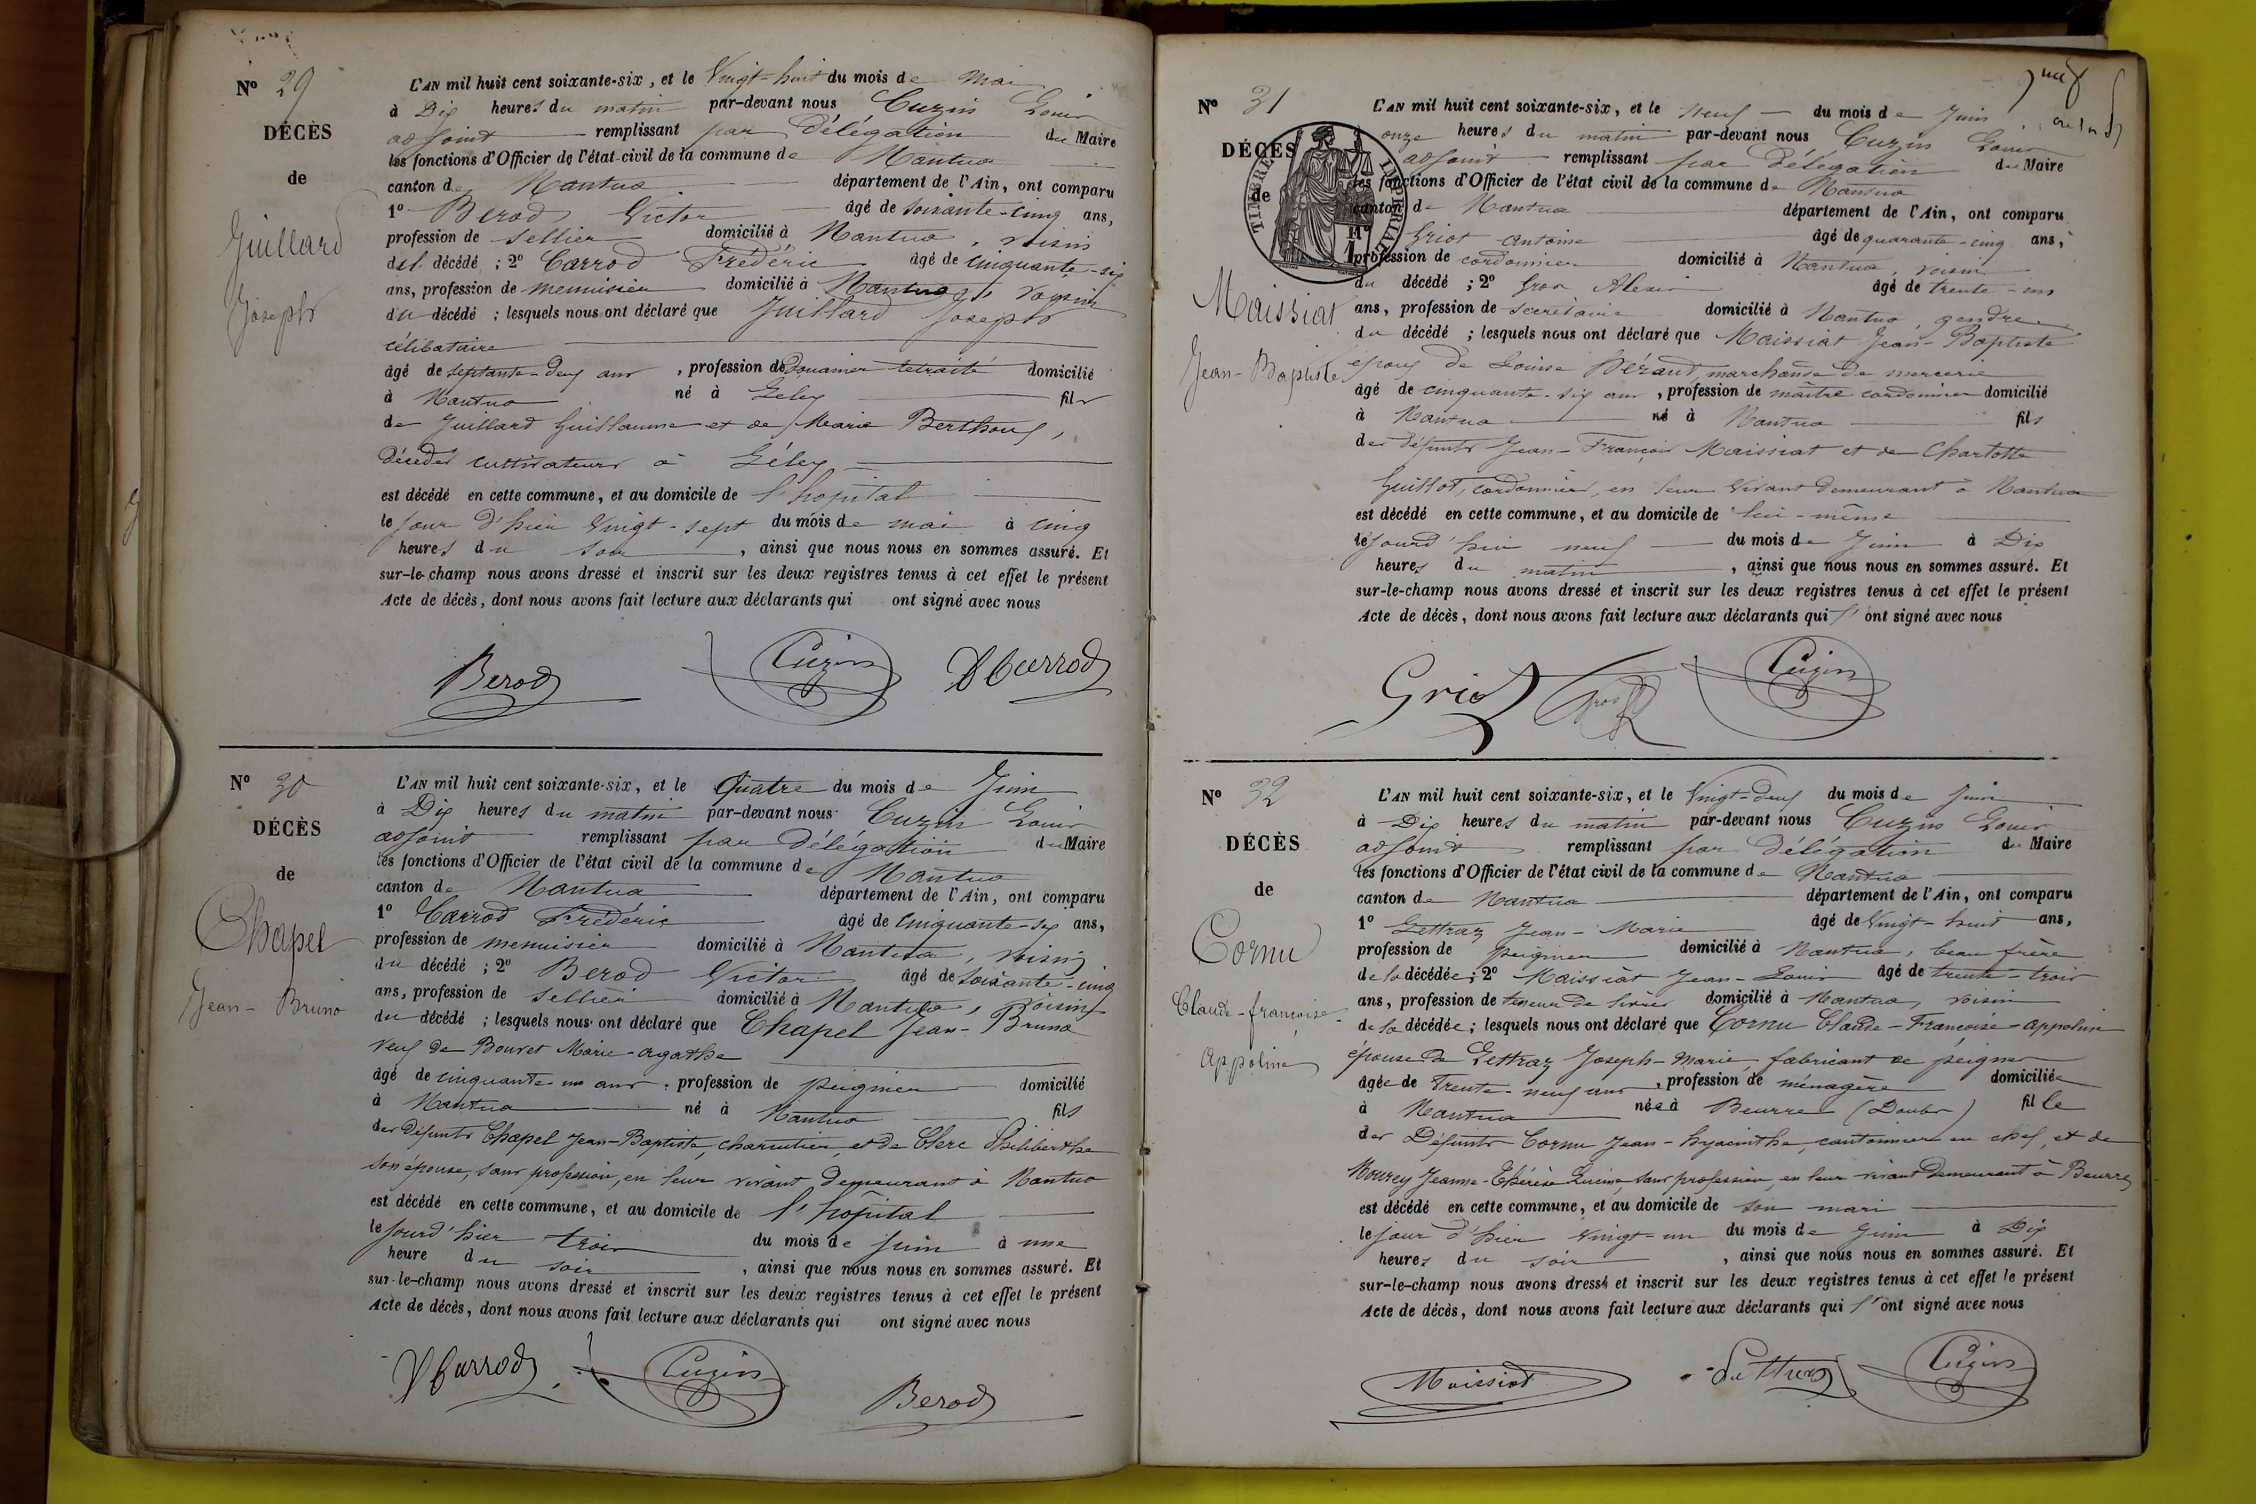 N° 29
DÉCÈS
de
Juillard
Joseph
L'AN mil huit cent soixante-six, et le Vingt-huit du mois de Mai
à Dix heures du matin par-devant nous Cuzin Louis
adjoint remplissant par Délégation du Maire
les fonctions d'Officier de l'état-civil de la commune de Nantua
canton de Nantua département de l'Ain, ont comparu
1° Berod Victor âgé de soixante-cinq ans,
profession de sellier domicilié à Nantua, voisin
du décédé ; 2° Carrod Frédéric âgé de cinquante-six
ans, profession de menuisier domicilié à Nantua, voisin
du décédé ; lesquels nous ont déclaré que Juillard Joseph
célibataire
âgé de septante-deux ans, profession de Douanier retraité domicilié
à Nantua né à Géley fils
de Juillard Guillaume et de Marie Berthoux,
Décédés cultivateurs à Géley
est décédé en cette commune, et au domicile de l'hopital
le jour d'hier Vingt-sept du mois de mai à cinq
heures du soir, ainsi que nous nous en sommes assuré. Et
sur-le-champ nous avons dressé et inscrit sur les deux registres tenus à cet effet le présent
Acte de décès, dont nous avons fait lecture aux déclarants qui ont signé avec nous
Berod Cuzin Carrod
N° 30
DÉCÈS
de
Chapel
Jean-Bruno
L'AN mil huit cent soixante-six, et le Quatre du mois de Juin
à Dix heures du matin par-devant nous Cuzin Louis
adjoint remplissant par Délégation du Maire
les fonctions d'Officier de l'état civil de la commune de Nantua
canton de Nantua département de l'Ain, ont comparu
1° Carrod Frédéric âgé de cinquante-six ans,
profession de menuisier domicilié à Nantua, voisin
du décédé ; 2° Berod Victor âgé de soixante-cinq
ans, profession de sellier domicilié à Nantua, voisin
du décédé ; lesquels nous ont déclaré que Chapel Jean-Bruno
veuf de Bouvet Marie-agathe
âgé de cinquante-un ans, profession de peignier domicilié
à Nantua né à Nantua fils
des défunts Chapel Jean-Baptiste, charcutier, et de Clerc Philiberthe
son épouse, sans profession, en leur vivant demeurant à Nantua
est décédé en cette commune, et au domicile de l'hôpital
le jourd'hier trois du mois de juin à une
heure du soir, ainsi que nous nous en sommes assuré. Et
sur-le-champ nous avons dressé et inscrit sur les deux registres tenus à cet effet le présent
Acte de décès, dont nous avons fait lecture aux déclarants qui ont signé avec nous
Carrod Cuzin Berod
N° 31
DÉCÈS
de
TIMBRE IMPERIAL
Maissiat
Jean-Baptiste
L'AN mil huit cent soixante-six, et le neuf du mois de Juin
onze heures du matin par-devant nous Cuzin Louis
adjoint remplissant par Délégation du Maire
les fonctions d'Officier de l'état civil de la commune de Nantua
canton de Nantua département de l'Ain, ont comparu
1° Griot Antoine âgé de quarante-cinq ans,
profession de cordonnier domicilié à Nantua, voisin
du décédé ; 2° Gros Alexis âgé de trente-un
ans, profession de secrétaire domicilié à Nantua, gendre
du décédé ; lesquels nous ont déclaré que Maissiat Jean-Baptiste
époux de Louise Déraud, marchande de mercerie
âgé de cinquante-six ans, profession de maître cordonnier domicilié
à Nantua né à Nantua fils
des défunts Jean-François Maissiat et de Charlotte
Guillot, cordonnier, en leur vivant demeurant à Nantua
est décédé en cette commune, et au domicile de lui-même
le jourd'hui neuf du mois de Juin à Dix
heures du matin, ainsi que nous nous en sommes assuré. Et
sur-le-champ nous avons dressé et inscrit sur les deux registres tenus à cet effet le présent
Acte de décès, dont nous avons fait lecture aux déclarants qui l'ont signé avec nous
Griot Gros Cuzin
N° 32
DÉCÈS
de
Cornu
Claude-françoise
Appoline
L'AN mil huit cent soixante-six, et le Vingt-deux du mois de Juin
à Dix heures du matin par-devant nous Cuzin Louis
adjoint remplissant par Délégation du Maire
les fonctions d'Officier de l'état civil de la commune de Nantua
canton de Nantua département de l'Ain, ont comparu
1° Lettraz Jean-Marie âgé de Vingt-huit ans,
profession de peignier domicilié à Nantua, beau frère
de la décédée ; 2° Maissiat Jean-Louis âgé de trente-trois
ans, profession de teneur de livres domicilié à Nantua, voisin
de la décédée ; lesquels nous ont déclaré que Cornu Claude-Françoise-appoline
épouse de Lettraz Joseph-Marie, fabricant de peignes
âgée de Trente-neuf ans, profession de ménagère domiciliée
à Nantua née à Beurre (Doubs) fille
des Défunts Cornu Jean-hyacinthe, cantonnier en chef, et de
Mourey Jeanne-Thérèse Lucine, sans profession, en leur vivant Demeurant à Beurre
est décédé en cette commune, et au domicile de son mari
le jour d'hier vingt-un du mois de Juin à Dix
heures du soir, ainsi que nous nous en sommes assuré. Et
sur-le-champ nous avons dressé et inscrit sur les deux registres tenus à cet effet le présent
Acte de décès, dont nous avons fait lecture aux déclarants qui l'ont signé avec nous
Maissiat Lettraz Cuzin